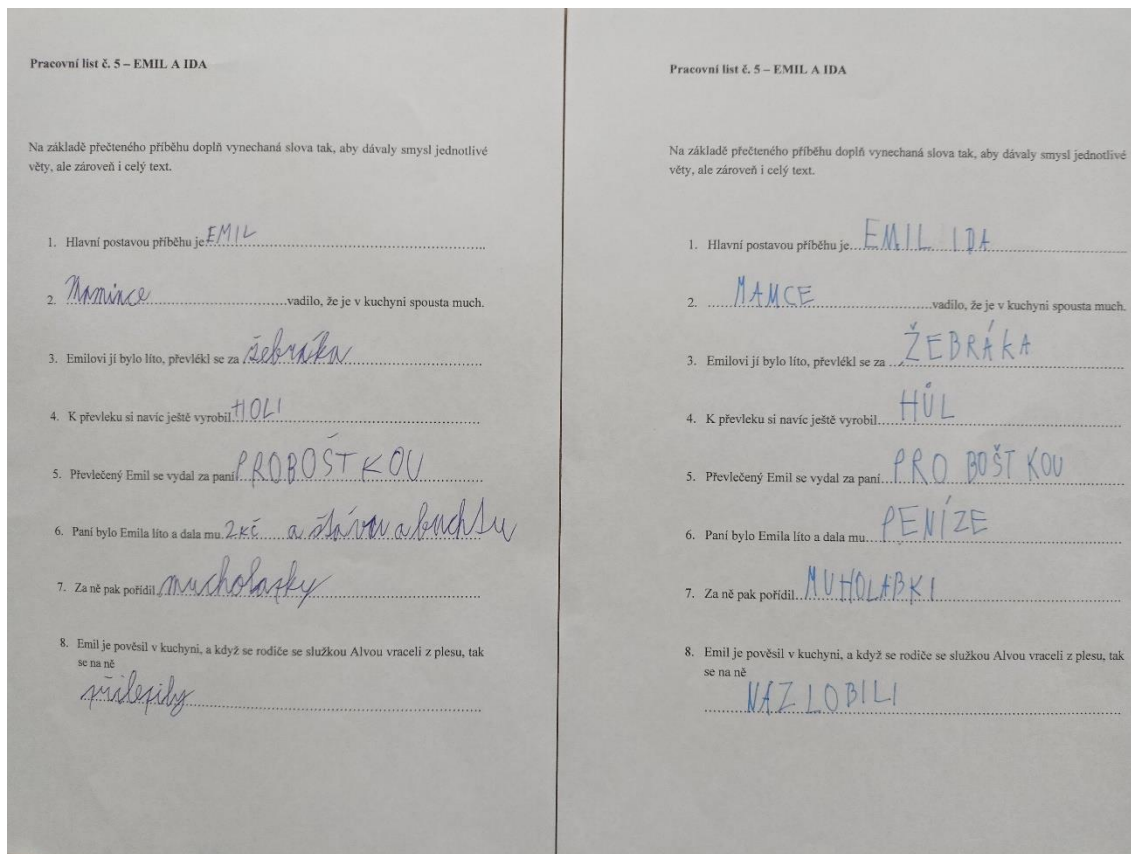 Pracovní list č. 5 – EMIL A IDA
Na základě přečteného příběhu doplň vynechaná slova tak, aby dávaly smysl jednotlivé
věty, ale zároveň i celý text.
1. Hlavní postavou příběhu je EMIL
2. Mamince vadilo, že je v kuchyni spousta much.
3. Emilovi jí bylo líto, převlékl se za žebráka
4. K převleku si navíc ještě vyrobil HOLI
5. Převlečený Emil se vydal za paní PROBOŠTKOU
6. Paní bylo Emila líto a dala mu 2 Kč a šťávou a buchtu
7. Za ně pak pořídil mucholapky
8. Emil je pověsil v kuchyni, a když se rodiče se služkou Alvou vraceli z plesu, tak
se na ně
přilepily
Pracovní list č. 5 – EMIL A IDA
Na základě přečteného příběhu doplň vynechaná slova tak, aby dávaly smysl jednotlivé
věty, ale zároveň i celý text.
1. Hlavní postavou příběhu je EMIL IDA
2. MAMCE vadilo, že je v kuchyni spousta much.
3. Emilovi jí bylo líto, převlékl se za ŽEBRÁKA
4. K převleku si navíc ještě vyrobil HŮL
5. Převlečený Emil se vydal za paní PRO BOŠT KOU
6. Paní bylo Emila líto a dala mu PENÍZE
7. Za ně pak pořídil MUHOLABKI
8. Emil je pověsil v kuchyni, a když se rodiče se služkou Alvou vraceli z plesu, tak
se na ně
NAZLOBILI